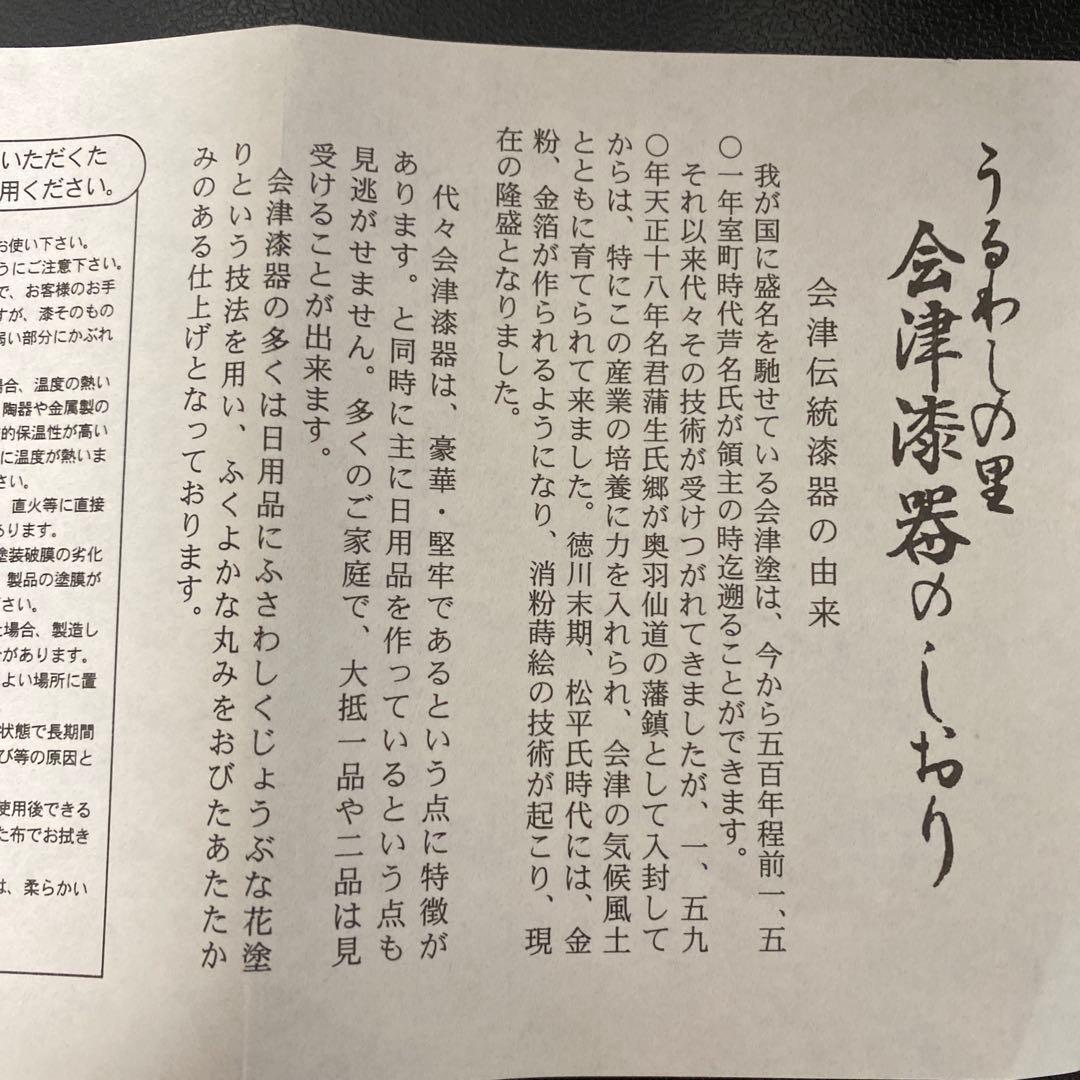 うるわしの里
会津漆器のしおり
会津伝統漆器の由来
我が国に盛名を馳せている会津塗は、今から五百年程前一、五
〇一年室町時代芦名氏が領主の時迄遡ることができます。
それ以来代々その技術が受けつがれてきましたが、一、五九
〇年天正十八年名君蒲生氏郷が奥羽仙道の藩鎮として入封して
からは、特にこの産業の培養に力を入れられ、会津の気候風土
とともに育てられて来ました。徳川末期、松平氏時代には、金
粉、金箔が作られるようになり、消粉蒔絵の技術が起こり、現
在の隆盛となりました。
代々会津漆器は、豪華・堅牢であるという点に特徴が
あります。と同時に主に日用品を作っているという点も
見逃がせません。多くのご家庭で、大抵一品や二品は見
受けることが出来ます。
会津漆器の多くは日用品にふさわしくじょうぶな花塗
りという技法を用い、ふくよかな丸みをおびたあたたか
みのある仕上げとなっております。
いただくた
用ください。
お使い下さい。
うにご注意下さい。
で、お客様のお手
すが、漆そのもの
弱い部分にかぶれ
場合、温度の熱い
陶器や金属製の
的保温性が高い
に温度が熱いま
さい。
直火等に直接
あります。
塗装破膜の劣化
製品の塗膜が
ださい。
た場合、製造し
合があります。
よい場所に置
状態で長期間
び等の原因と
使用後できる
た布でお拭き
は、柔らかい